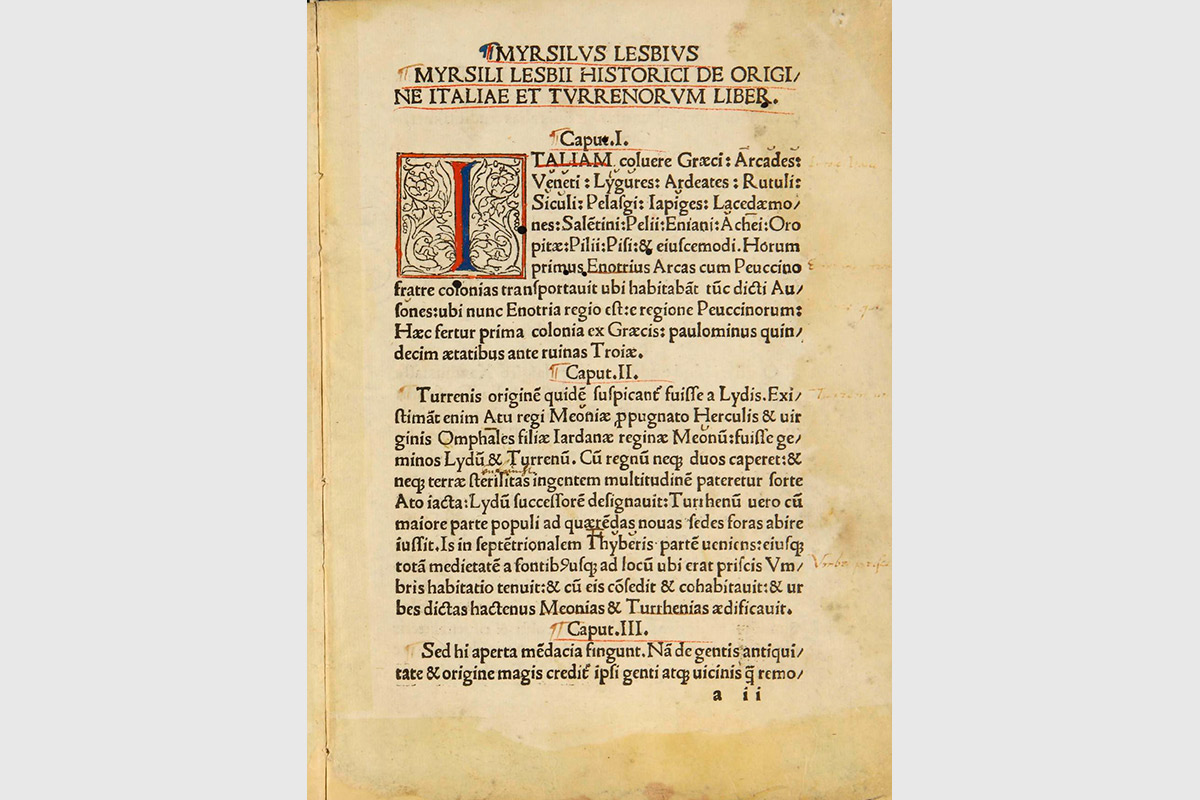 MYRSILVS LESBIVS
MYRSILI LESBII HISTORICI DE ORIGI/
NE ITALIAE ET TVRRENORVM LIBER.
Caput.I.
ITALIAM coluere Græci: Arcades:
Veneti: Lygures: Ardeates: Rutuli:
Siculi: Pelasgi: Iapiges: Lacedæmo/
nes: Salẽtini: Pelii: Eniani: Achei: Oro
pitæ: Pilii: Pisi: & eiuscemodi. Horum
primus Enotrius Arcas cum Peuccino
fratre colonias transportauit ubi habitabãt tũc dicti Au/
sones: ubi nunc Enotria regio est: e regione Peuccinorum:
Hæc fertur prima colonia ex Græcis: paulominus quin/
decim ætatibus ante ruinas Troiæ.
Caput.II.
Turrenis originẽ quidẽ suspicant᷑ fuisse a Lydis. Exi/
stimãt enim Atu regi Meoniæ ꝓpugnato Herculis & uir
ginis Omphales filiæ Iardanæ reginæ Meonũ: fuisse ge/
minos Lydũ & Turrenũ. Cũ regnũ neqꝫ duos caperet: &
neqꝫ terræ sterilitas ingentem multitudinẽ pateretur sorte
Ato iacta: Lydũ successorẽ designauit: Turrhenũ uero cũ
maiore parte populi ad quærẽdas nouas sedes foras abire
iussit. Is in septẽtrionalem Thyberis partẽ ueniens: eiusqꝫ
totã medietatẽ a fontibꝰusqꝫ ad locũ ubi erat priscis Vm/
bris habitatio tenuit: & cũ eis cõsedit & cohabitauit: & ur
bes dictas hactenus Meonias & Turrhenias ædificauit.
Caput.III.
Sed hi aperta mẽdacia fingunt. Nã de gentis antiqui/
tate & origine magis credit᷑ ipsi genti atqꝫ uicinis q̃ remo/
a ii